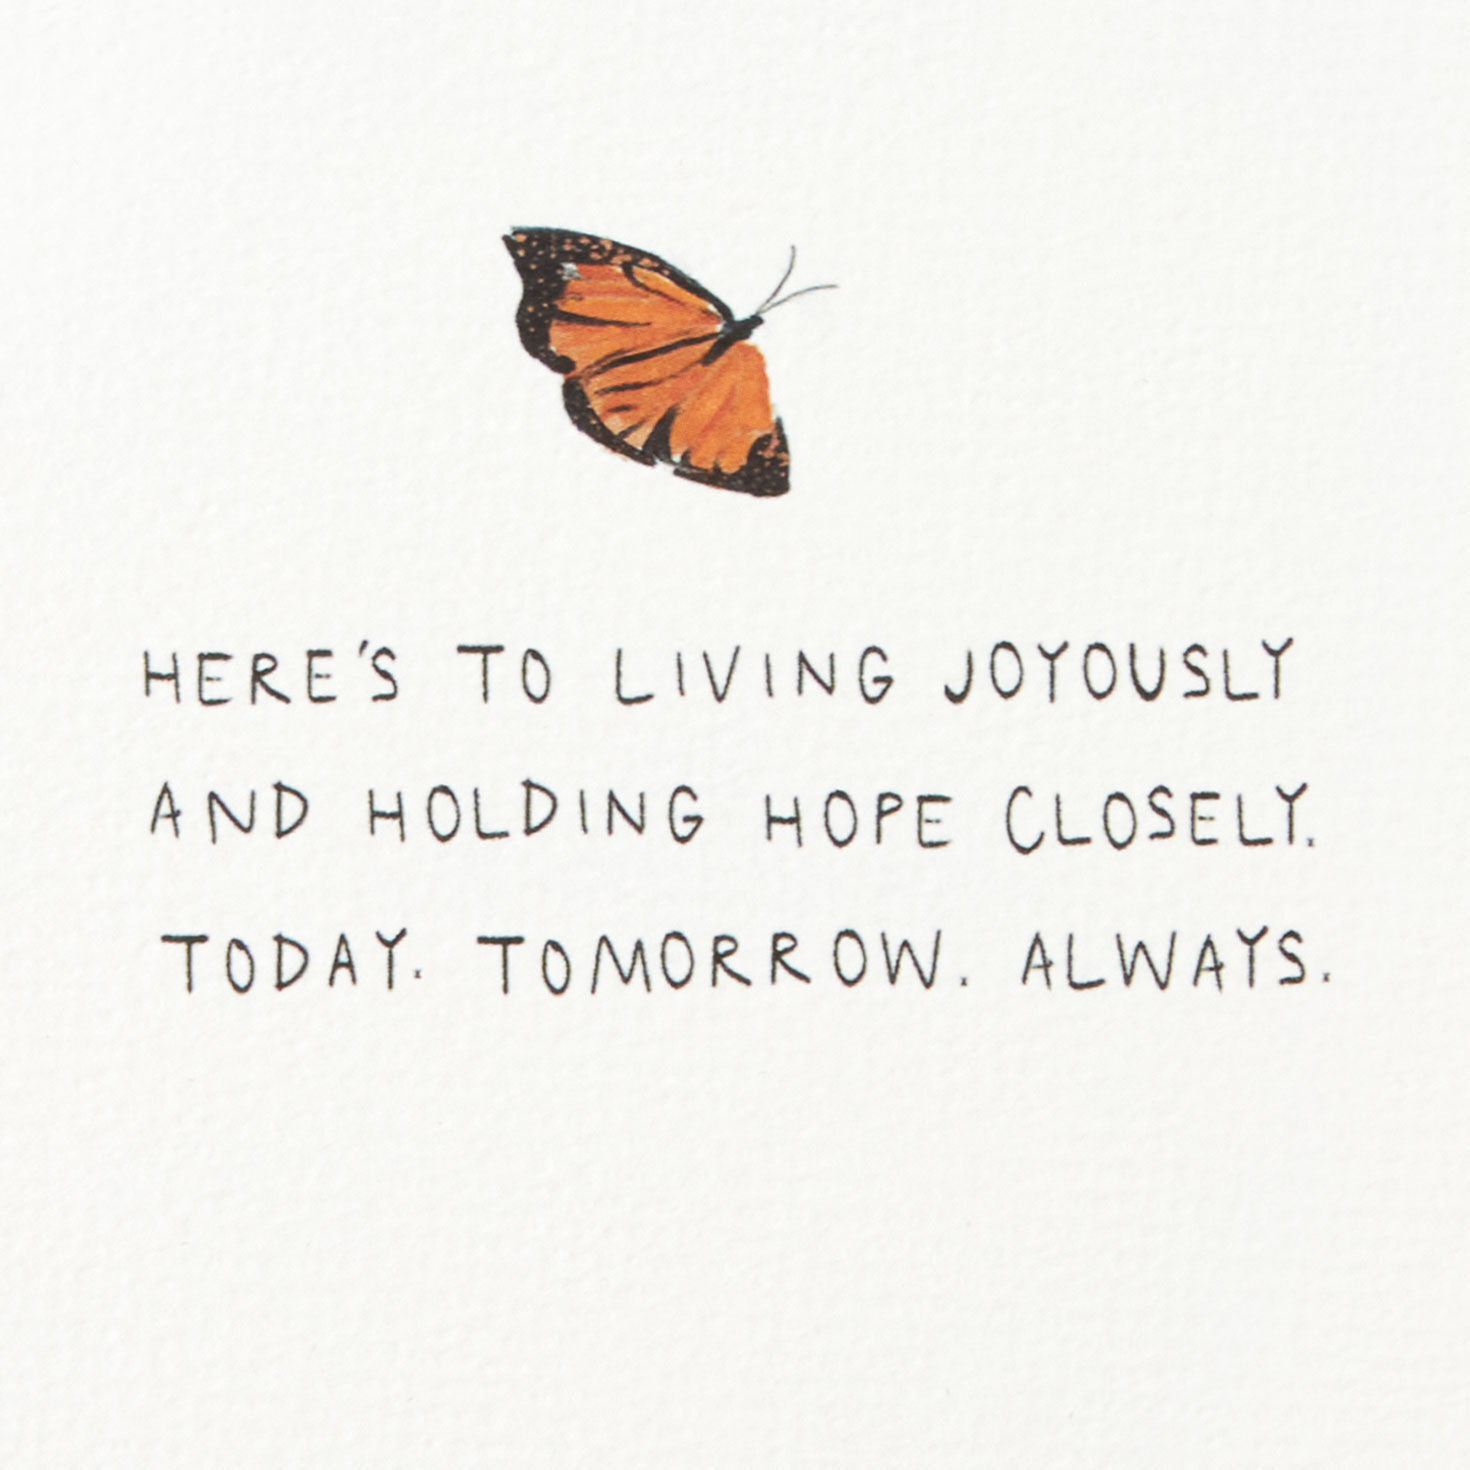 HERE'S TO LIVING JOYOUSLY
AND HOLDING HOPE CLOSELY.
TODAY. TOMORROW. ALWAYS.